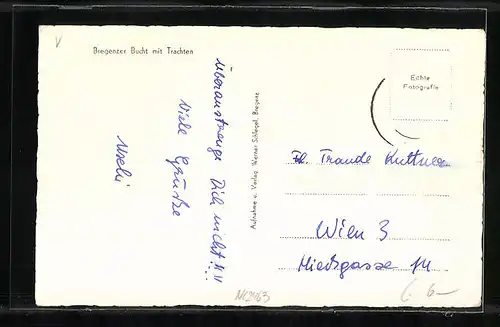 V
Bregenzer Bucht mit Trachten
Überanstrenge Dich nicht!!!
Viele Grüsse
Uschi
Aufnahme u. Verlag Werner Schlegel, Bregenz
Echte
Fotografie
Fr. Traude Kuttner
Wien 3
Hiessgasse 14
6.-